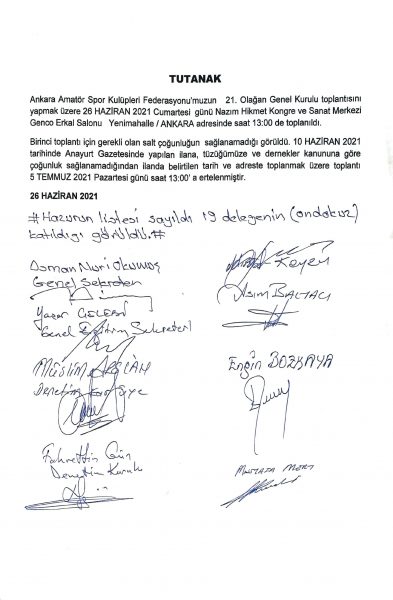 TUTANAK
Ankara Amatör Spor Kulüpleri Federasyonu'muzun 21. Olağan Genel Kurulu toplantısını
yapmak üzere 26 HAZİRAN 2021 Cumartesi günü Nazım Hikmet Kongre ve Sanat Merkezi
Genco Erkal Salonu Yenimahalle / ANKARA adresinde saat 13:00 de toplanıldı.
Birinci toplantı için gerekli olan salt çoğunluğun sağlanamadığı görüldü. 10 HAZİRAN 2021
tarihinde Anayurt Gazetesinde yapılan ilana, tüzüğümüze ve dernekler kanununa göre
çoğunluk sağlanamadığından ilanda belirtilen tarih ve adreste toplanmak üzere toplantı
5 TEMMUZ 2021 Pazartesi günü saat 13:00' a ertelenmiştir.
26 HAZİRAN 2021
#Hazurun listesi sayıldı 19 delegenin (ondokuz)
katıldığı görüldü.#
Osman Nuri Okumuş
Genel Sekreter
Yaşar
Genel Eğitim Sekreteri
Müslim ARSLAN
Denetim Üye
Fahrettin Gün
Denetim Kurulu
Asım BALTACI
Engin BOZKAYA
Mustafa